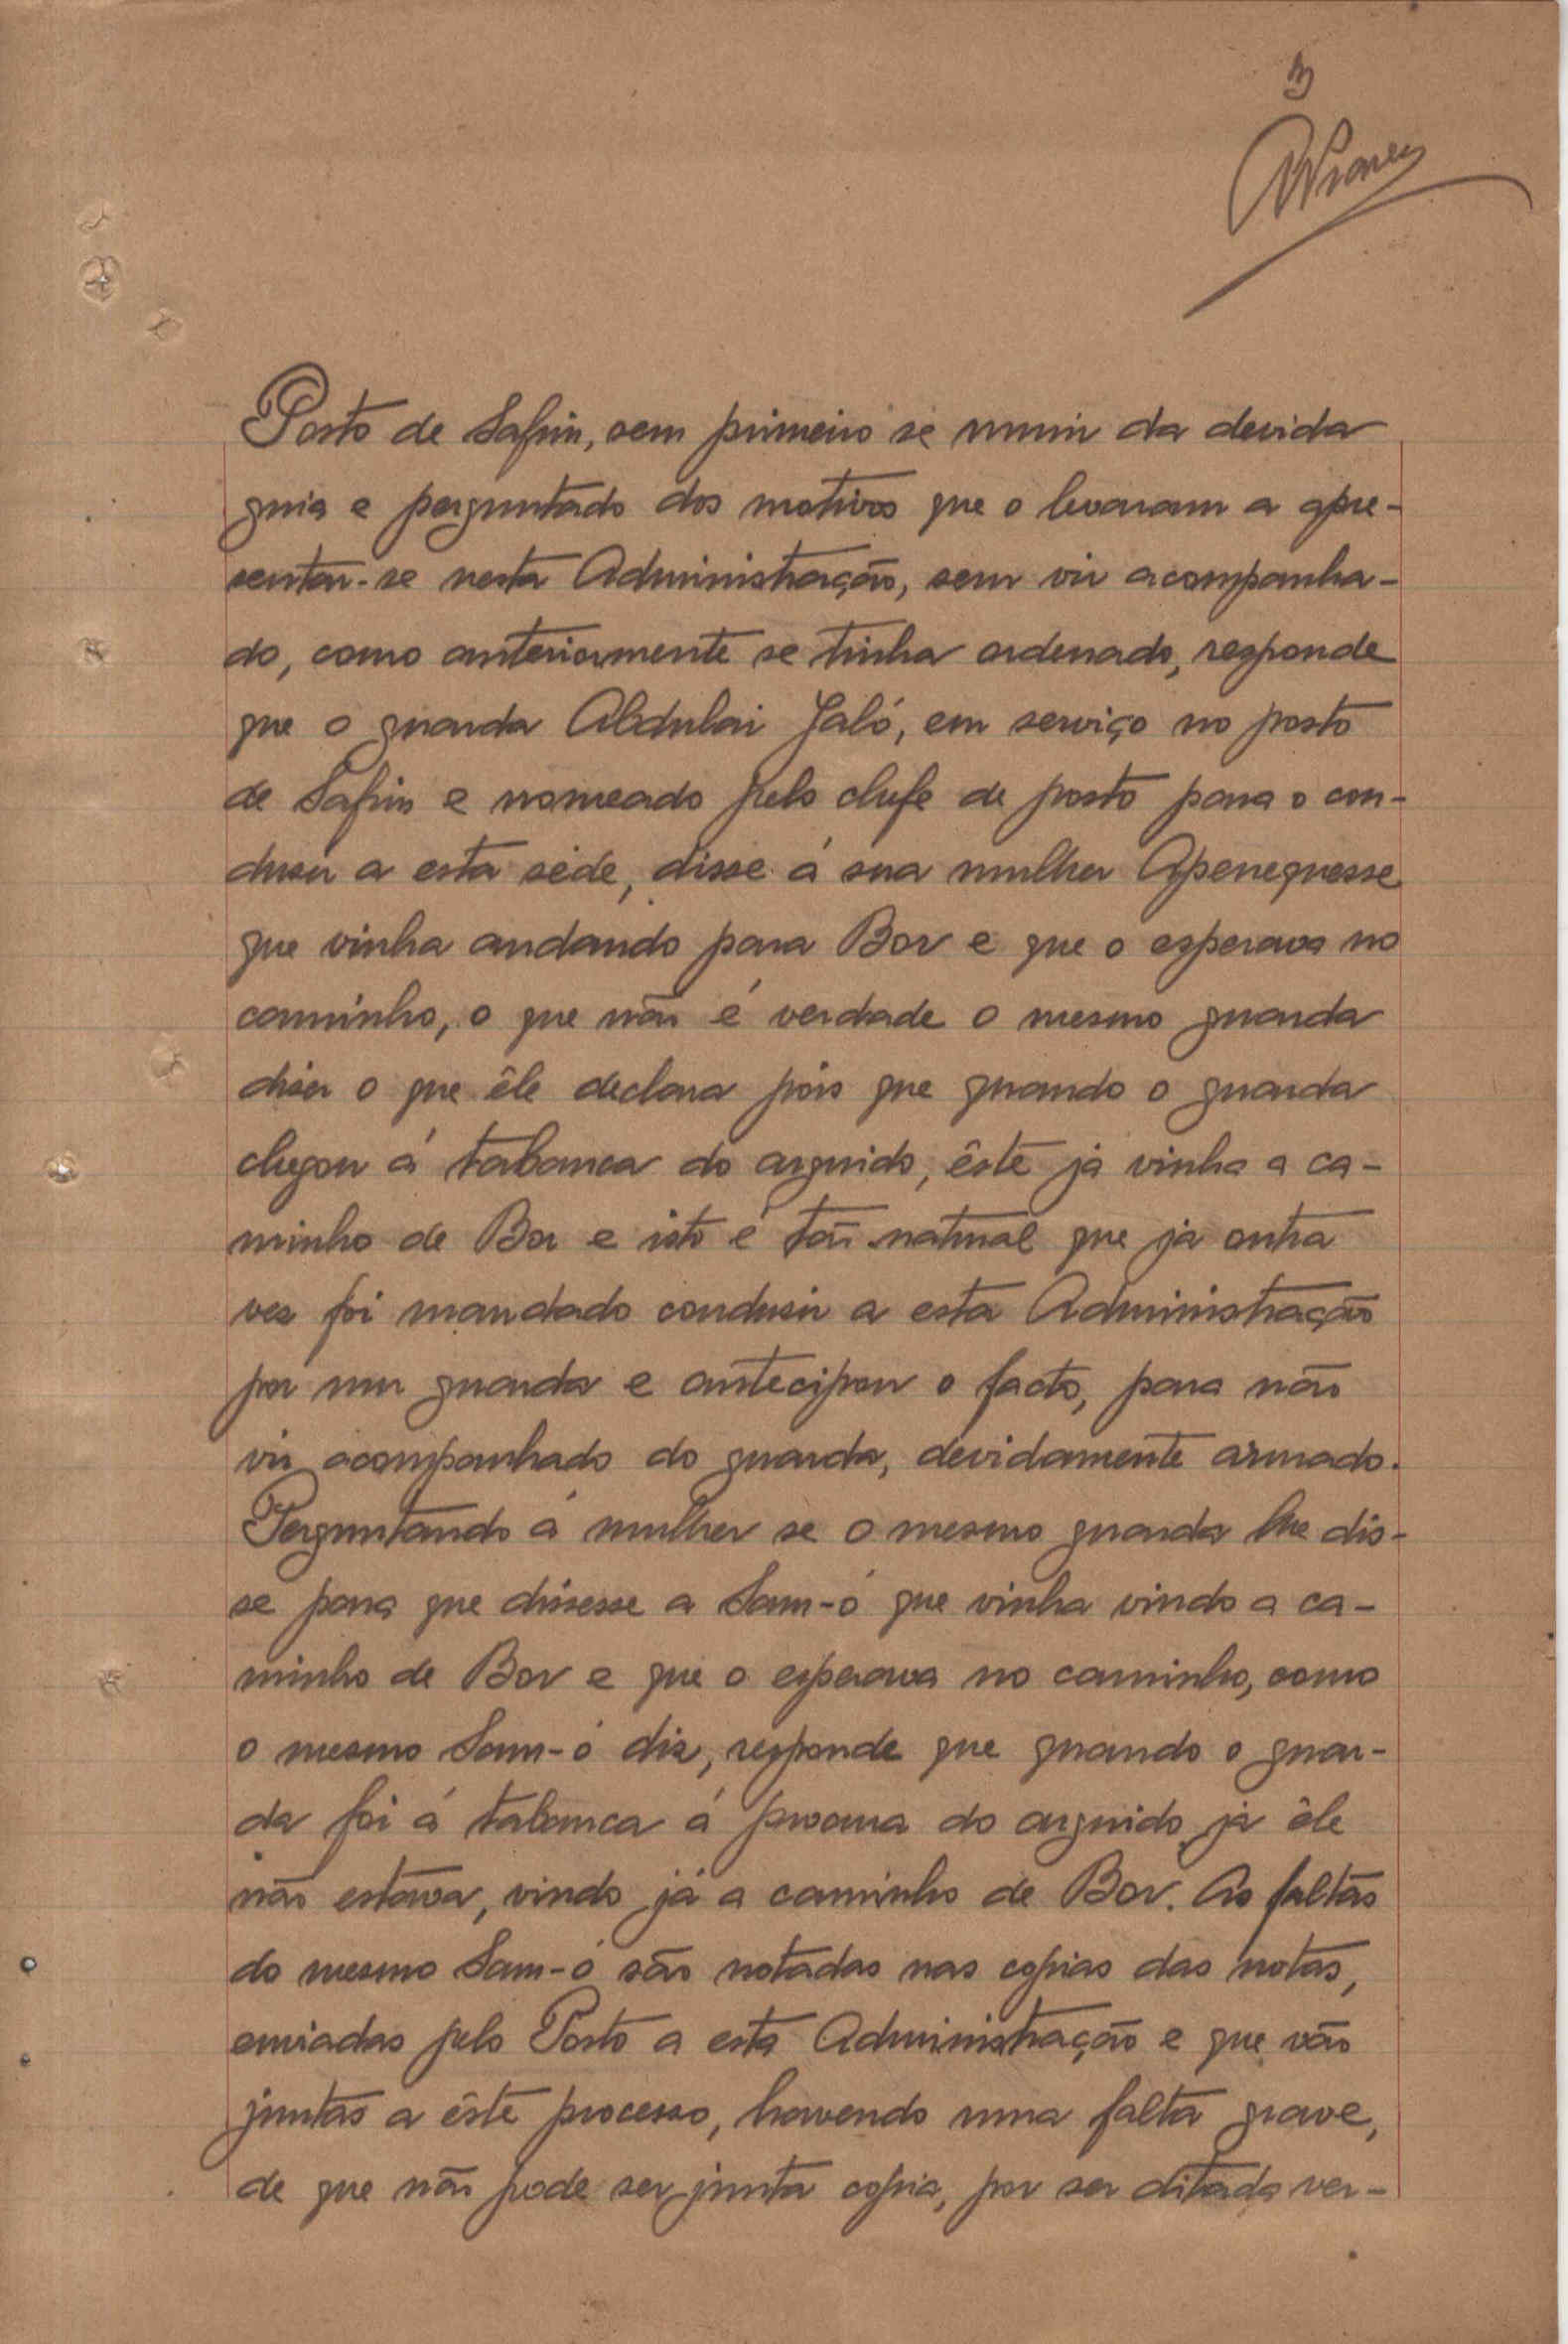 3
Posto de Safim, sem primeiro se munir da devida
guia e perguntado dos motivos que o levaram a apre-
sentar-se nesta Administração, sem vir acompanha-
do, como anteriormente se tinha ordenado, responde
que o guarda Abdulai Jaló, em serviço no posto
de Safim e nomeado pelo chefe de posto para o con-
dusir a esta séde, disse á sua mulher Apenequesse
que vinha andando para Bor e que o esperava no
caminho, o que não é verdade o mesmo guarda
diser o que êle declara pois que quando o guarda
chegou á tabanca do arguido, êste já vinha a ca-
minho de Bor e isto é tão natural que já outra
vez foi mandado condusir a esta Administração
por um guarda e antecipou o facto, para não
vir acompanhado do guarda, devidamente armado.
Perguntando á mulher se o mesmo guarda lhe dis-
se para que disesse a Sam-ó que vinha vindo a ca-
minho de Bor e que o esperava no caminho, como
o mesmo Sam-ó diz, responde que quando o guar-
da foi á tabanca á procura do arguido já êle
não estava, vindo já a caminho de Bor. As faltas
do mesmo Sam-ó são notadas nas copias das notas,
enviadas pelo Posto a esta Administração e que vão
juntas a êste processo, havendo uma falta grave,
de que não pode ser junta copia, por ser ditada ver-